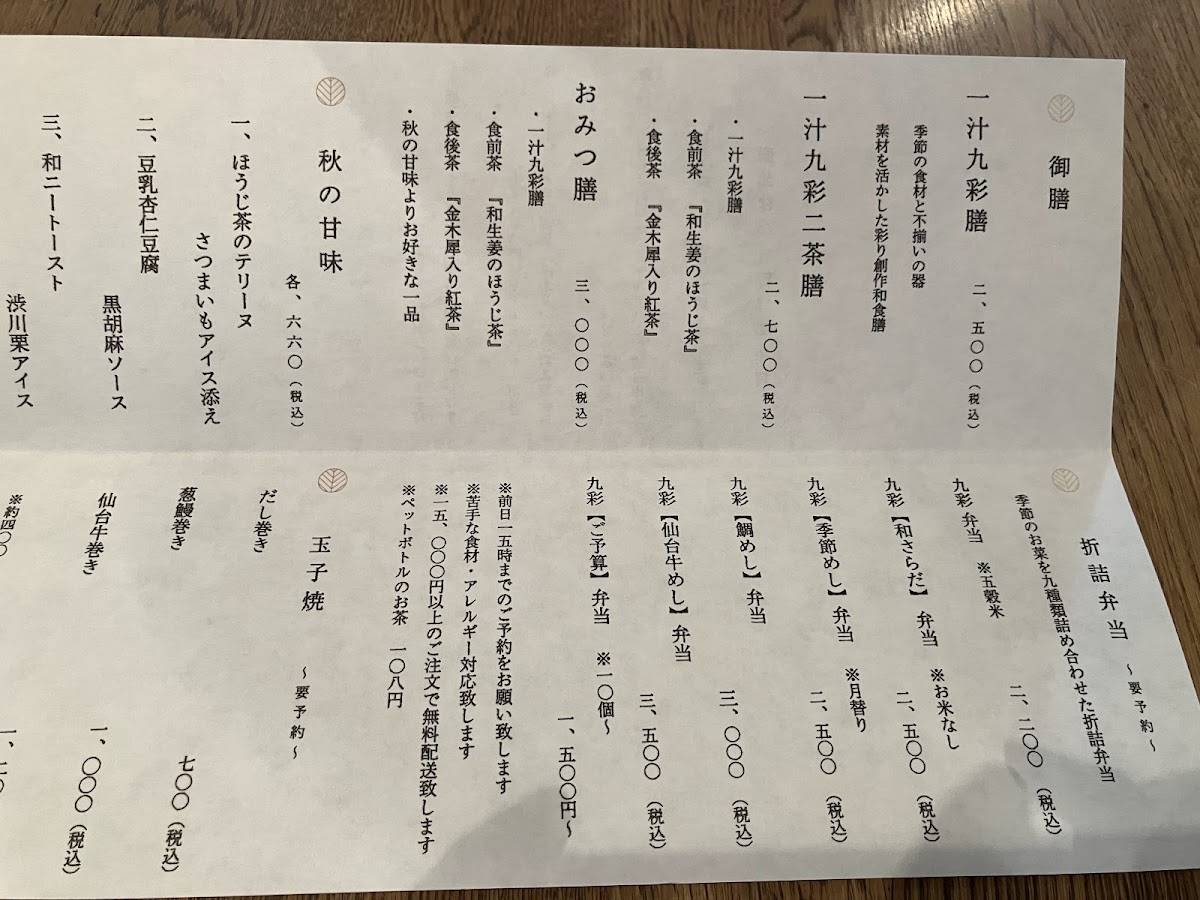 御膳
一汁九彩膳
二、五〇〇（税込）
季節の食材と不揃いの器
素材を活かした彩り創作和食膳
一汁九彩二茶膳
二、七〇〇（税込）
・一汁九彩膳
・食前茶 『和生姜のほうじ茶』
・食後茶 『金木犀入り紅茶』
おみつ膳
三、〇〇〇（税込）
・一汁九彩膳
・食前茶 『和生姜のほうじ茶』
・食後茶 『金木犀入り紅茶』
・秋の甘味よりお好きな一品
秋の甘味
各、六六〇（税込）
一、ほうじ茶のテリーヌ
さつまいもアイス添え
二、豆乳杏仁豆腐
黒胡麻ソース
三、和ニートースト
渋川栗アイス
折詰弁当 〜要予約〜
季節のお菜を九種類詰め合わせた折詰弁当
九彩弁当 ※五穀米
二、二〇〇（税込）
九彩【和さらだ】弁当 ※お米なし
二、五〇〇（税込）
九彩【季節めし】弁当 ※月替り
二、五〇〇（税込）
九彩【鯛めし】弁当
三、〇〇〇（税込）
九彩【仙台牛めし】弁当
三、五〇〇（税込）
九彩【ご予算】弁当 ※一〇個〜
一、五〇〇円〜
※前日一五時までのご予約をお願い致します
※苦手な食材・アレルギー対応致します
※一五、〇〇〇円以上のご注文で無料配送致します
※ペットボトルのお茶 一〇八円
玉子焼 〜要予約〜
だし巻き
七〇〇（税込）
葱鰻巻き
一、〇〇〇（税込）
仙台牛巻き
一、二〇
※約四〇〇